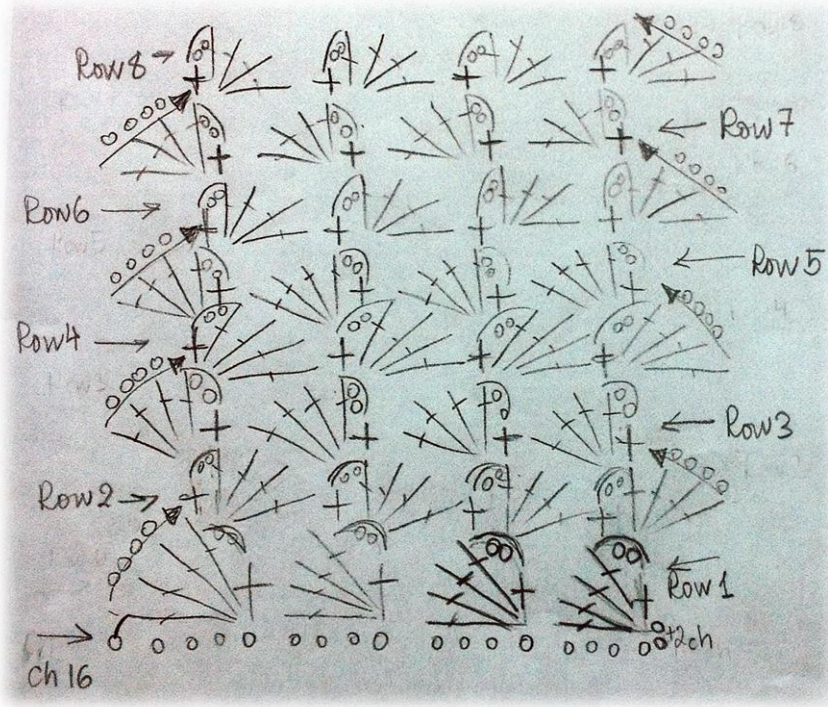 Row 8
Row 7
Row 6
Row 5
Row 4
Row 3
Row 2
Row 1
+2ch
Ch 16